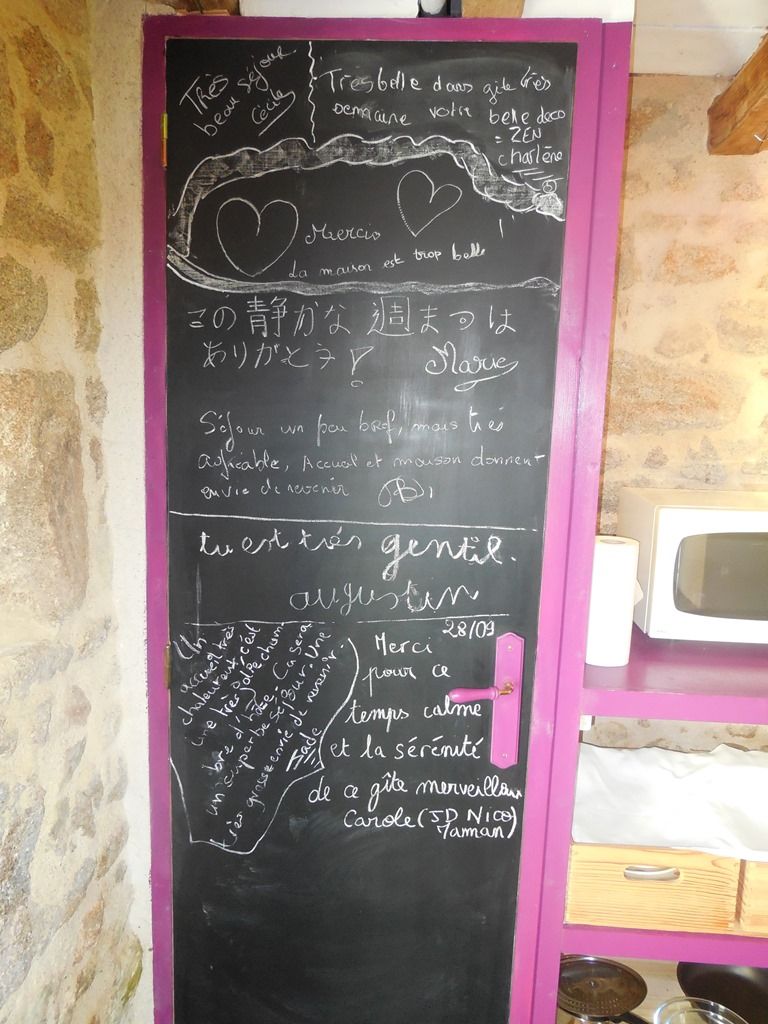 Très
beau séjour
Cécile
Très belle dans gîte très
semaine votre belle deco
= ZEN
charlène
Mercis
La maison est trop belle !
この静かな週まつは
ありがとう!
Marie
Séjour un peu bref, mais très
agréable, Accueil et maison donnent
envie de revenir
tu est très gentil.
augustin
28/09
Un
accueil très
chaleureux, c'est
une très jolie cham
bre d'hôte. Ca sera
un super be sé jour. Une
très grosse envie de revenir.
Jade
Merci
pour ce
temps calme
et la sérénité
de ce gîte merveilleux
Carole (JD Nico
Maman)